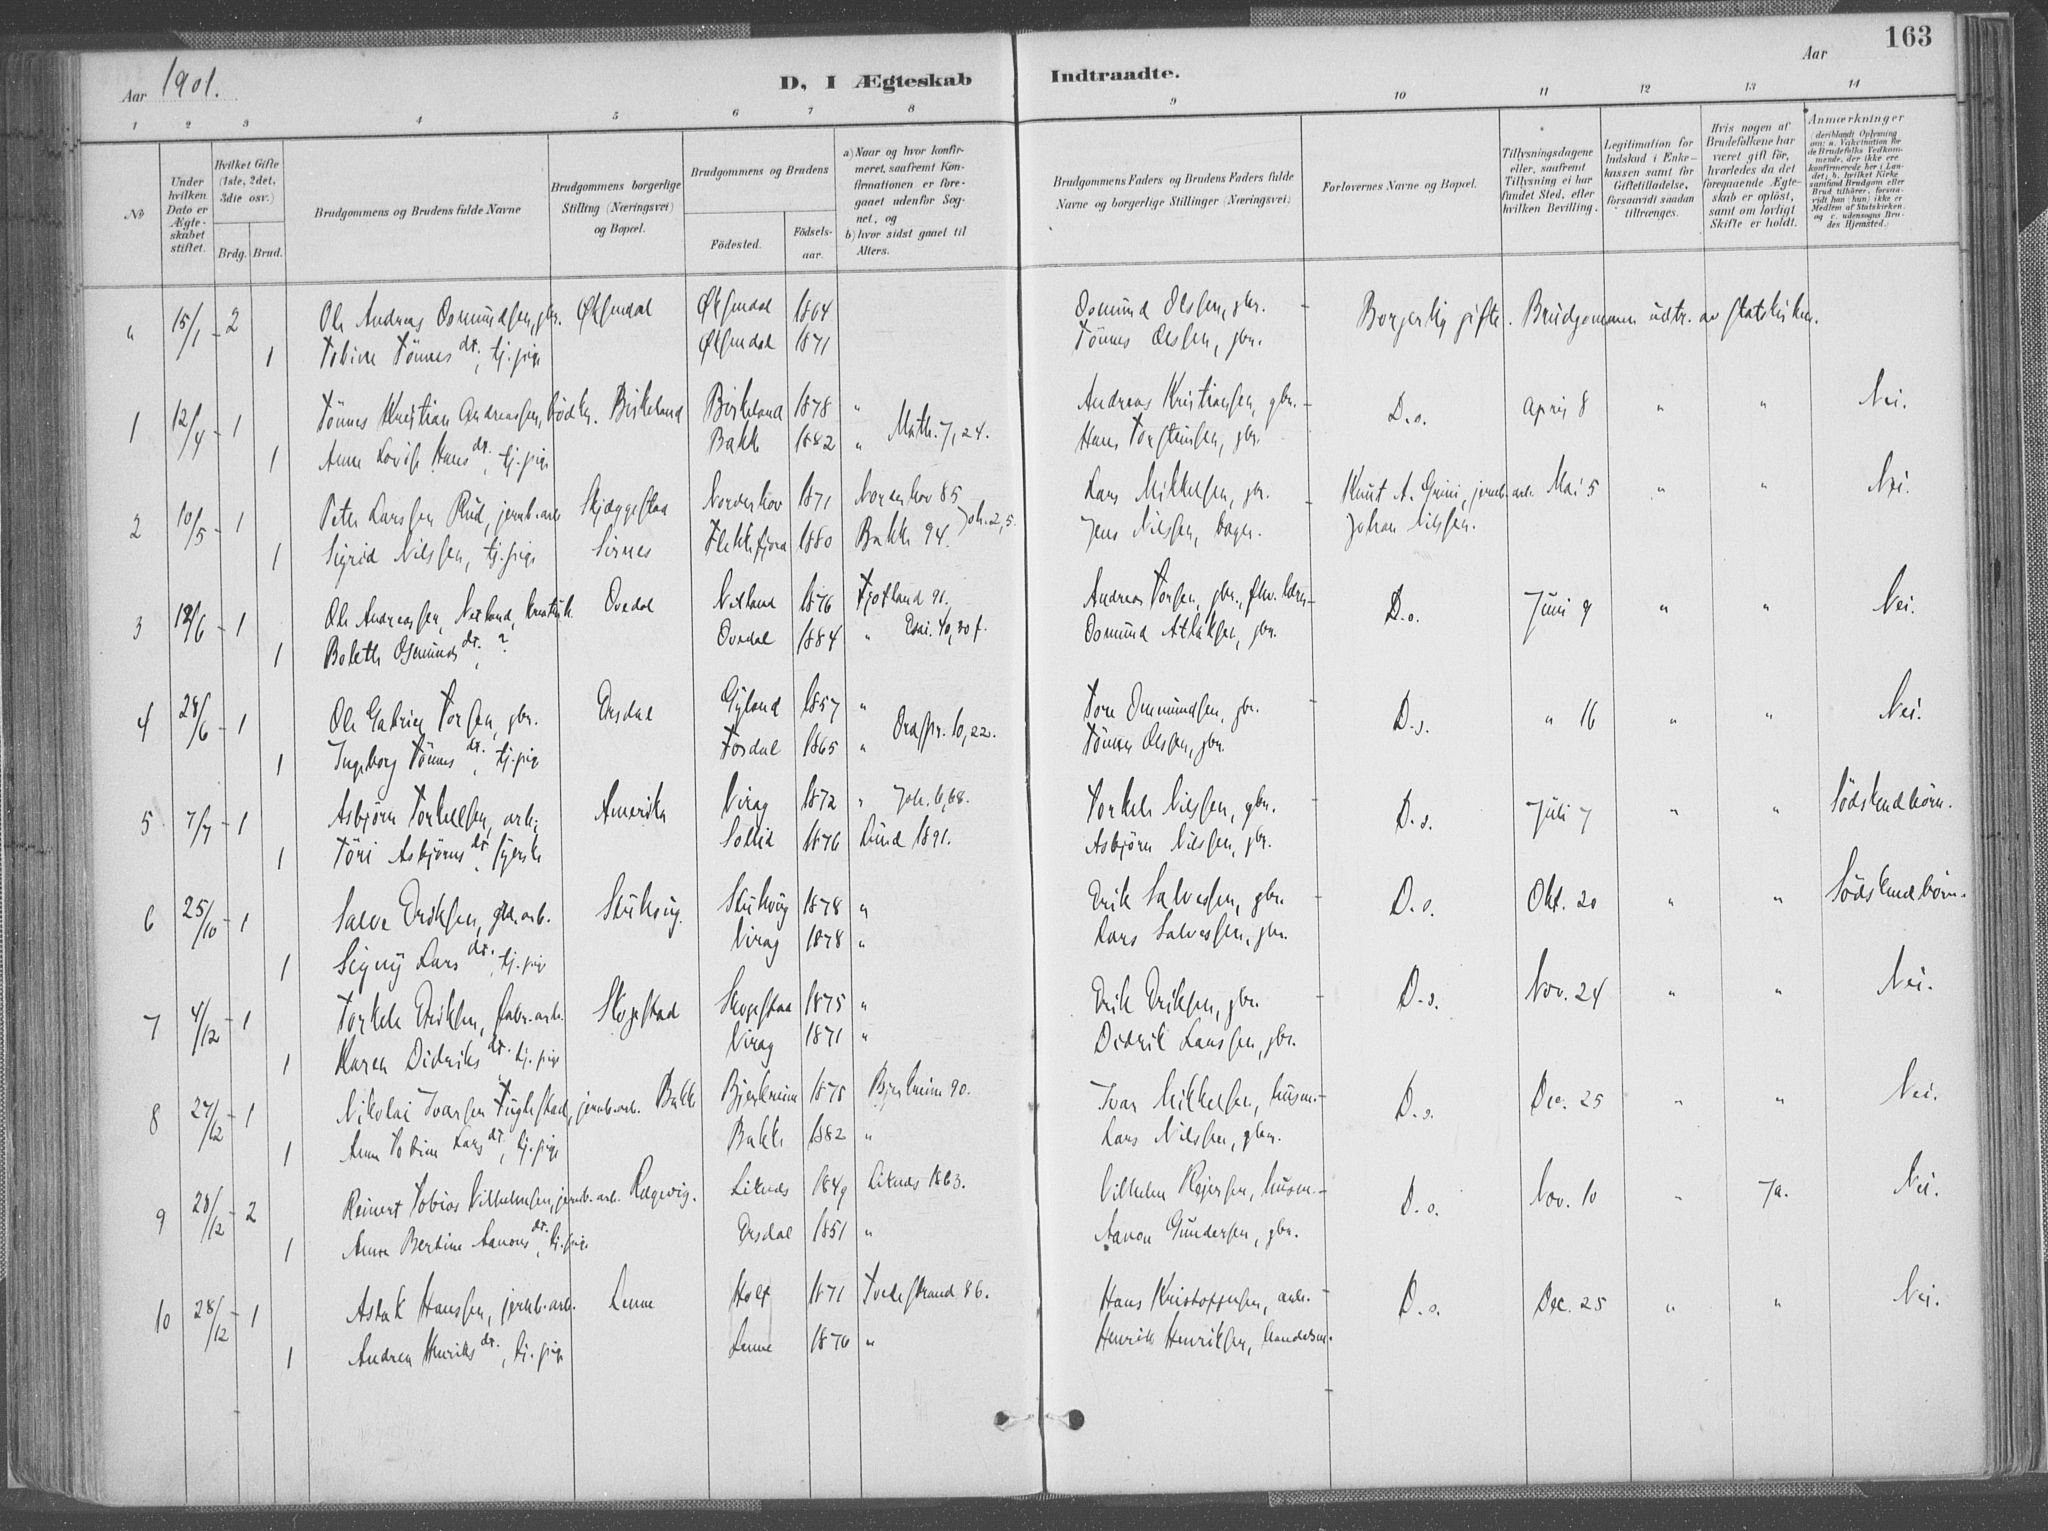 163
Aar 1901.
D, I Ægteskab
Indtraadte.
Aar
1 2 3 4 5 6 7 8 9 10 11 12 13 14
No
Under hvilken Dato er Ægteskabet stiftet.
Hvilket Gifte (1ste, 2det, 3die osv.)
Brdg. Brud.
Brudgommens og Brudens fulde Navne
Brudgommens borgerlige Stilling (Næringsvei) og Bopœl.
Brudgommens og Brudens
Födested.
Födsels-aar.
a) Naar og hvor konfirmeret, saafremt Konfirmationen er foregaaet udenfor Sognet, og
b) hvor sidst gaaet til Alters.
Brudgommens Faders og Brudens Faders fulde Navne og borgerlige Stillinger (Næringsvei)
Forlovernes Navne og Bopœl.
Tillysningsdagene eller, saafremt Tillysning ei har fundet Sted, efter hvilken Bevilling.
Legitimation for Indskud i Enkekassen samt for Giftetilladelse, forsaavidt saadan tiltrœnges.
Hvis nogen af Brudefolkene har vœret gift før, hvorledes da det foregaaende Ægteskab er oplöst, samt om lovligt Skifte er holdt.
Anmærkninger
" 15/1 - 2 Ole Andreas Osmundsen, gbr. Øksendal Øksendal 1864 Osmund Olsen, gbr. - Borgerlig gifte. Brudgommen udtr. av statskirken.
1 Tobine Tönnes dr., tj. pige Øksendal 1871 Tönnes Olsen, gbr.
1 12/4 - 1 Tönnes Kristian Andreassen, bödk. Birkeland Birkeland 1878 " Andreas Kristiansen, gbr. - D.o. April 8 " " Nei.
1 Anne Lovise Hans dr., tj. pige Bakke 1882 " Math. 7,24. Hans Torsteinsen, gbr.
2 10/5 - 1 Peter Larssen Rud, jernb.arb. Skjæggestad Norderhov 1871 Norderhov 85 Lars Mikkelsen, gbr. Knut A. Grini, jernb.arb. Mai 5 " " Nei.
1 Sigrid Nilssen, tj. pige Sirnes Flekkefjord 1880 Bakke 94. Joh. 2,5. Jens Nilssen, bager. Johan Nilssen.
3 12/6 - 1 Ole Andreassen Netland, Ovedal Netland 1876 Fjotland 91. Andreas Torsen, gbr., D.o. Juni 9 " " Nei.
1 Bolette Osmunds dr. ? Ovedal 1884 " Esai. 40,30 f. Osmund Atlaksen, gbr.
4 28/6 - 1 Ole Gabriel Torsen, gbr. Ersdal Gyland 1857 " Tore Ommundsen, gbr. D.s. " 16 " " Nei.
1 Ingeborg Tönnes dr., tj. pige Josdal 1865 " Ordspr. 10,22. Tönnes Olsen, gbr.
5 7/7 - 1 Asbjörn Torkelsen, arb. Amerika Virag 1872 " Joh. 6,68. Torkel Nilssen, gbr. D.s. Juli 7 " " Södskendbörn.
1 Töri Asbjörns dr., syerske Sollid 1876 Lund 1891. Asbjörn Nilssen, gbr.
6 25/10 - 1 Salve Eriksen, arb. 1878 " Erik Salvesen, gbr. - D.o. Okt. 20 " " Södskendbörn.
1 Signy Lars dr., tj. pige Virag 1878 " Lars Salvesen, gbr.
7 4/12 - 1 Torkel Eriksen, fabr.arb. Skogestad Skogestad 1875 " Erik Eriksen, gbr. - D.s. Nov. 24 " " Nei.
1 Karen Didriks dr., tj. pige Virag 1871 " Didrik Larssen, gbr.
8 27/12 - 1 Nikolai Ivarsen Fuglestad, jernb.arb. Bakke Bjerkreim 1875 Bjerkreim 90. Ivar Mikkelsen, husm. - D.s. Dec. 25 " " Nei.
1 Anne Tobine Lars dr., tj. pige Bakke 1882 " Lars Nilssen, gbr.
9 28/12 - 2 Reinert Tobias Vilhelmsen, jernb.arb. Rægevig. Liknes 1849 Liknes 1863. Vilhelm Rejersen, husm. - D.o. Nov. 10 " Ja. Nei.
1 Anne Bertine Aanons dr., tj. pige Ersdal 1851 " Aanon Gundersen, gbr.
10 28/12 - 1 Aslak Hanssen, jernb.arb. Lunne Holt 1871 Tvedestrand 86. Hans Kristoffersen, arb. - D.o. Dec. 25 " " Nei.
1 Andrea Henriks dr., tj. pige Lunne 1876 " Henrik Henriksen, handelsm.